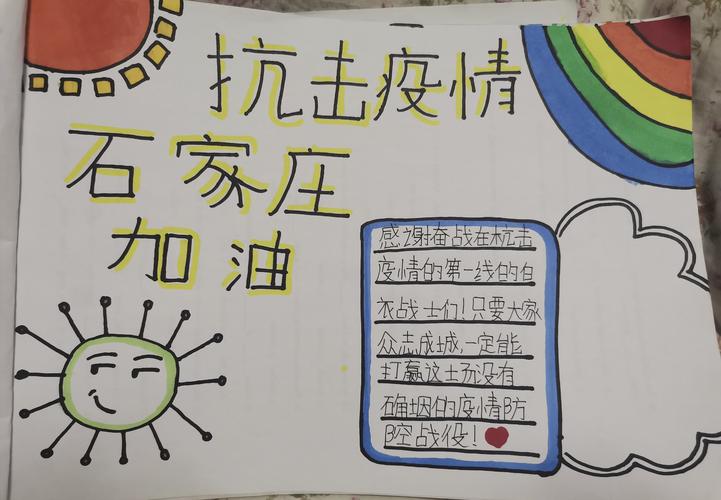 抗击疫情
石家庄
加油
感谢奋战在杭击
疫情的第一线的白
衣战士们！只要大家
众志成城,一定能
打赢这士场没有
确烟的疫情防
控战役！